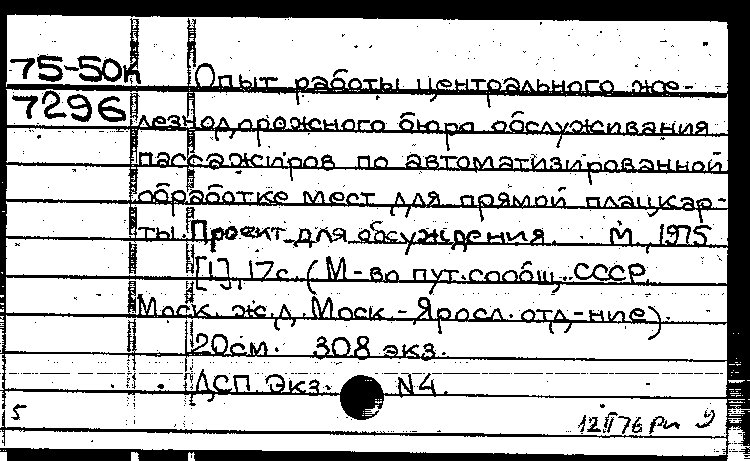 75-50к Опыт работы центрального же-
7296 лезнодорожного бюро обслуживания
пассажиров по автоматизированной
обработке мест для прямой плацкар-
ты. Проект для обсуждения. М., 1975
[1], 17с. (М-во пут. сообщ. СССР.
Моск. ж.д. Моск.-Яросл. отд-ние).
20см. 308 экз.
ДСП. Экз. N4.
5 12 II 76